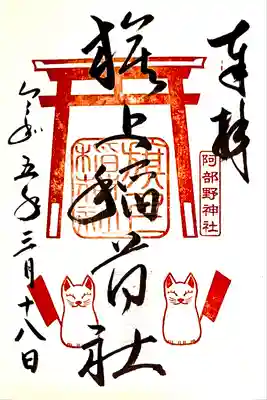 奉拝
阿部野神社
旗上稲荷社
令和五年三月十八日